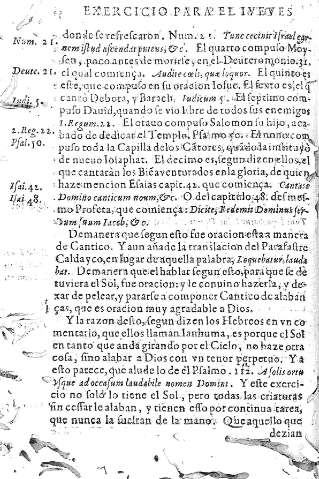 EXERCICIO PARA EL IVEVES
Num. 21.
donde se refrescaron, Num. 21. Tunc cecinit Israel car-
nem istud ascendat puteus, &c. El quarto compuso Moy-
sen, poco antes de morirse, en el Deuteronomio. 31.
Deute. 21.
el qual comiença. Audite cæli, quæ loquor. El quinto es
este, que compuso en su oracion Iosue. El sexto es, el q̃
Iudi. 5.
cantò Debora, y Barach. Iudicum 5. El septimo com-
puso Dauid, quando se vio libre de todos sus enemigos
2. Reg. 22.
1. Regum. 22. El octauo compuso Salomon su hijo, aca-
Psal. 30.
bado de dedicar el Templo, Psalmo 30. El nono com-
puso toda la Capilla de los Cãtores, instituyò
de nueuo Iosaphat. El decimo es, segun dizen ellos, el
que cantarán los Bienauenturados en la gloria, de quien
Isai. 42.
haze mencion Esaias capit. 42. que comiença. Cantate
Isai 48.
Domino canticum nouum, &c. O del capitulo 48. del mes-
mo Profeta, que comiença: Dicite, Redemit Dominus ser-
uum suum Iacob, &c.
De manera que segun esto fue oracion esta a manera
de Cantico. Y aun añade la translacion del Parafraste
Caldayco, en lugar de aquella palabra, Loquebatur, lauda
bat. De manera que el hablar segun esto, para que se de
tuuiera el Sol, fue oracion: y le conuino hazerla, y de-
xar de pelear, y pararse a componer Cantico de alaban
ças, que es oracion muy agradable a Dios.
Y la razon desto, segun dizen los Hebreos en vn co-
mentario, que ellos llaman Ianhuma, es porque el Sol
en tanto que anda girando por el Cielo, no haze otra
cosa, sino alabar a Dios con vn tenor perpetuo. Y a
esto parece, que alude lo de el Psalmo. 112. A solis ortu
vsque ad occasum laudabile nomen Domini. Y este exerci-
cio no solò lo tiene el Sol, pero todas las criaturas
sin cessar le alaban, y tienen esso por continua tarea,
que nunca la sueltan de la mano. Que aquello que
dezian